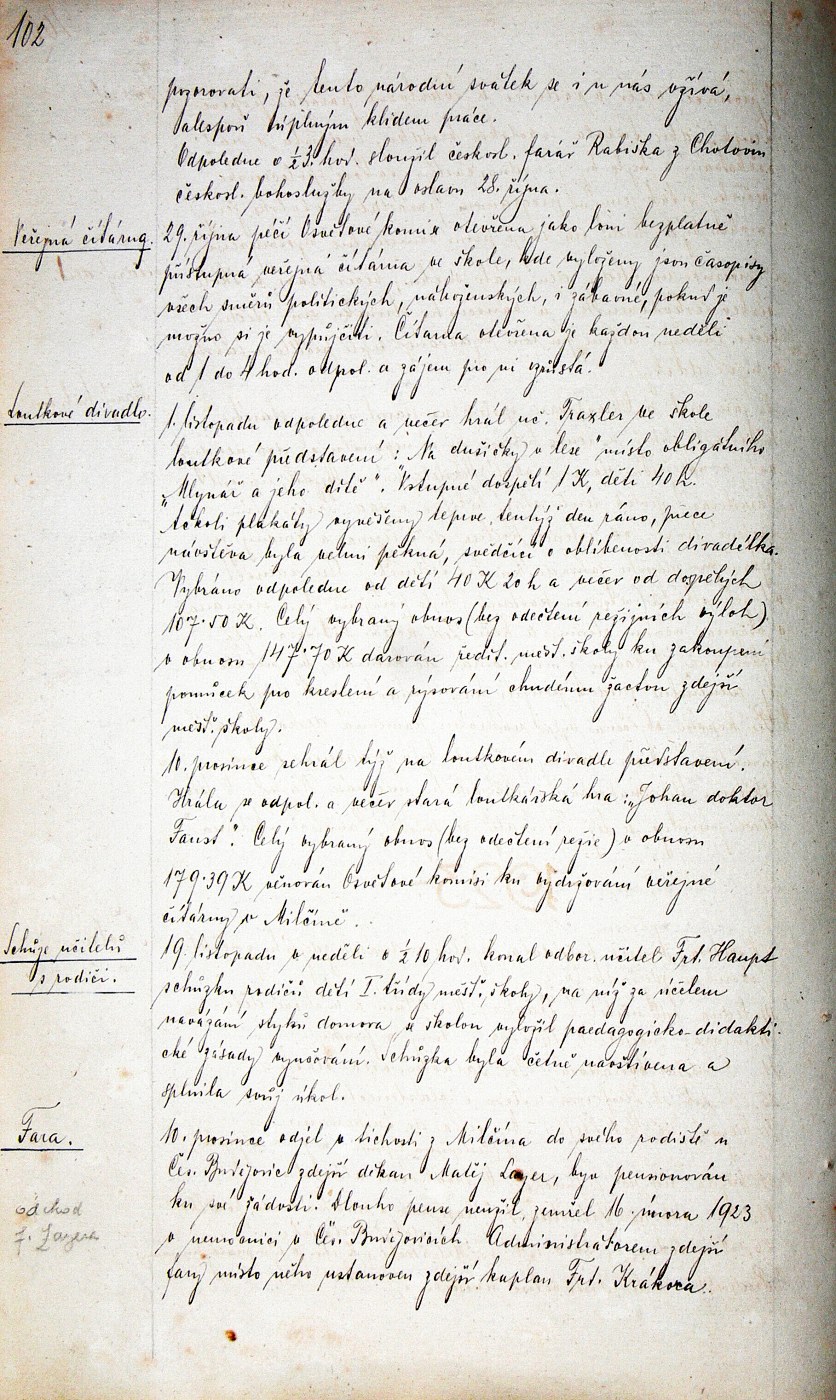 102
pozorovati, že tento národní svátek se i u nás vžívá,
alespoň úplným klidem práce.
Odpoledne o ½3. hod. sloužil českosl. farář Rabiška z Chotovin
českosl. bohoslužby na oslavu 28. října.
Veřejná čítárna.
29. října péčí Osvětové komise otevřena jako loni bezplatně
přístupná veřejná čítárna ve škole, kde vyloženy jsou časopisy
všech směrů politických, náboženských, i zábavné, pokud je
možno si je vypůjčiti. Čítárna otevřena je každou neděli
od 1 do 4 hod. odpol. a zájem pro ni vzrůstá.
Loutkové divadlo.
1. listopadu odpoledne a večer hrál uč. Traxler ve škole
loutkové představení: „Na dušičky v lese" místo obligátního
„Mlynář a jeho dítě". Vstupné dospělí 1 K, děti 40 h.
Ačkoli plakáty vyvěšeny teprve tentýž den ráno, přece
návštěva byla velmi pěkná, svědčící o oblíbenosti divadélka.
Vybráno odpoledne od dětí 40 K 20 h a večer od dospělých
107·50 K. Celý vybraný obnos (bez odečtení režijních výloh)
v obnosu 147·70 K darován ředit. měšť. školy ku zakoupení
pomůcek pro kreslení a rýsování chudému žactvu zdejší
měšť. školy.
10. prosince sehrál týž na loutkovém divadle představení.
Hrála se odpol. a večer stará loutkářská hra: „Johan doktor
Faust". Celý vybraný obnos (bez odečtení režie) v obnosu
179·39 K věnován Osvětové komisi ku vydržování veřejné
čítárny v Milčíně.
Schůze učitelů
s rodiči.
19. listopadu v neděli o ½10 hod. konal odbor. učitel Frt. Haupt
schůzku rodičů dětí I. třídy měšť. školy, na níž za účelem
navázání styků domova se školou vyložil paedagogicko-didakti-
cké zásady vyučování. Schůzka byla četně navštívena a
splnila svůj úkol.
Fara.
10. prosince odjel v tichosti z Milčína do svého rodiště u
Čes. Budějovic zdejší děkan Matěj Layer, byv pensionován
ku své žádosti. Dlouho pense neužil, zemřel 16. února 1923
v nemocnici v Čes. Budějovicích. Administrátorem zdejší
fary místo něho ustanoven zdejší kaplan Frt. Krákora.
odchod